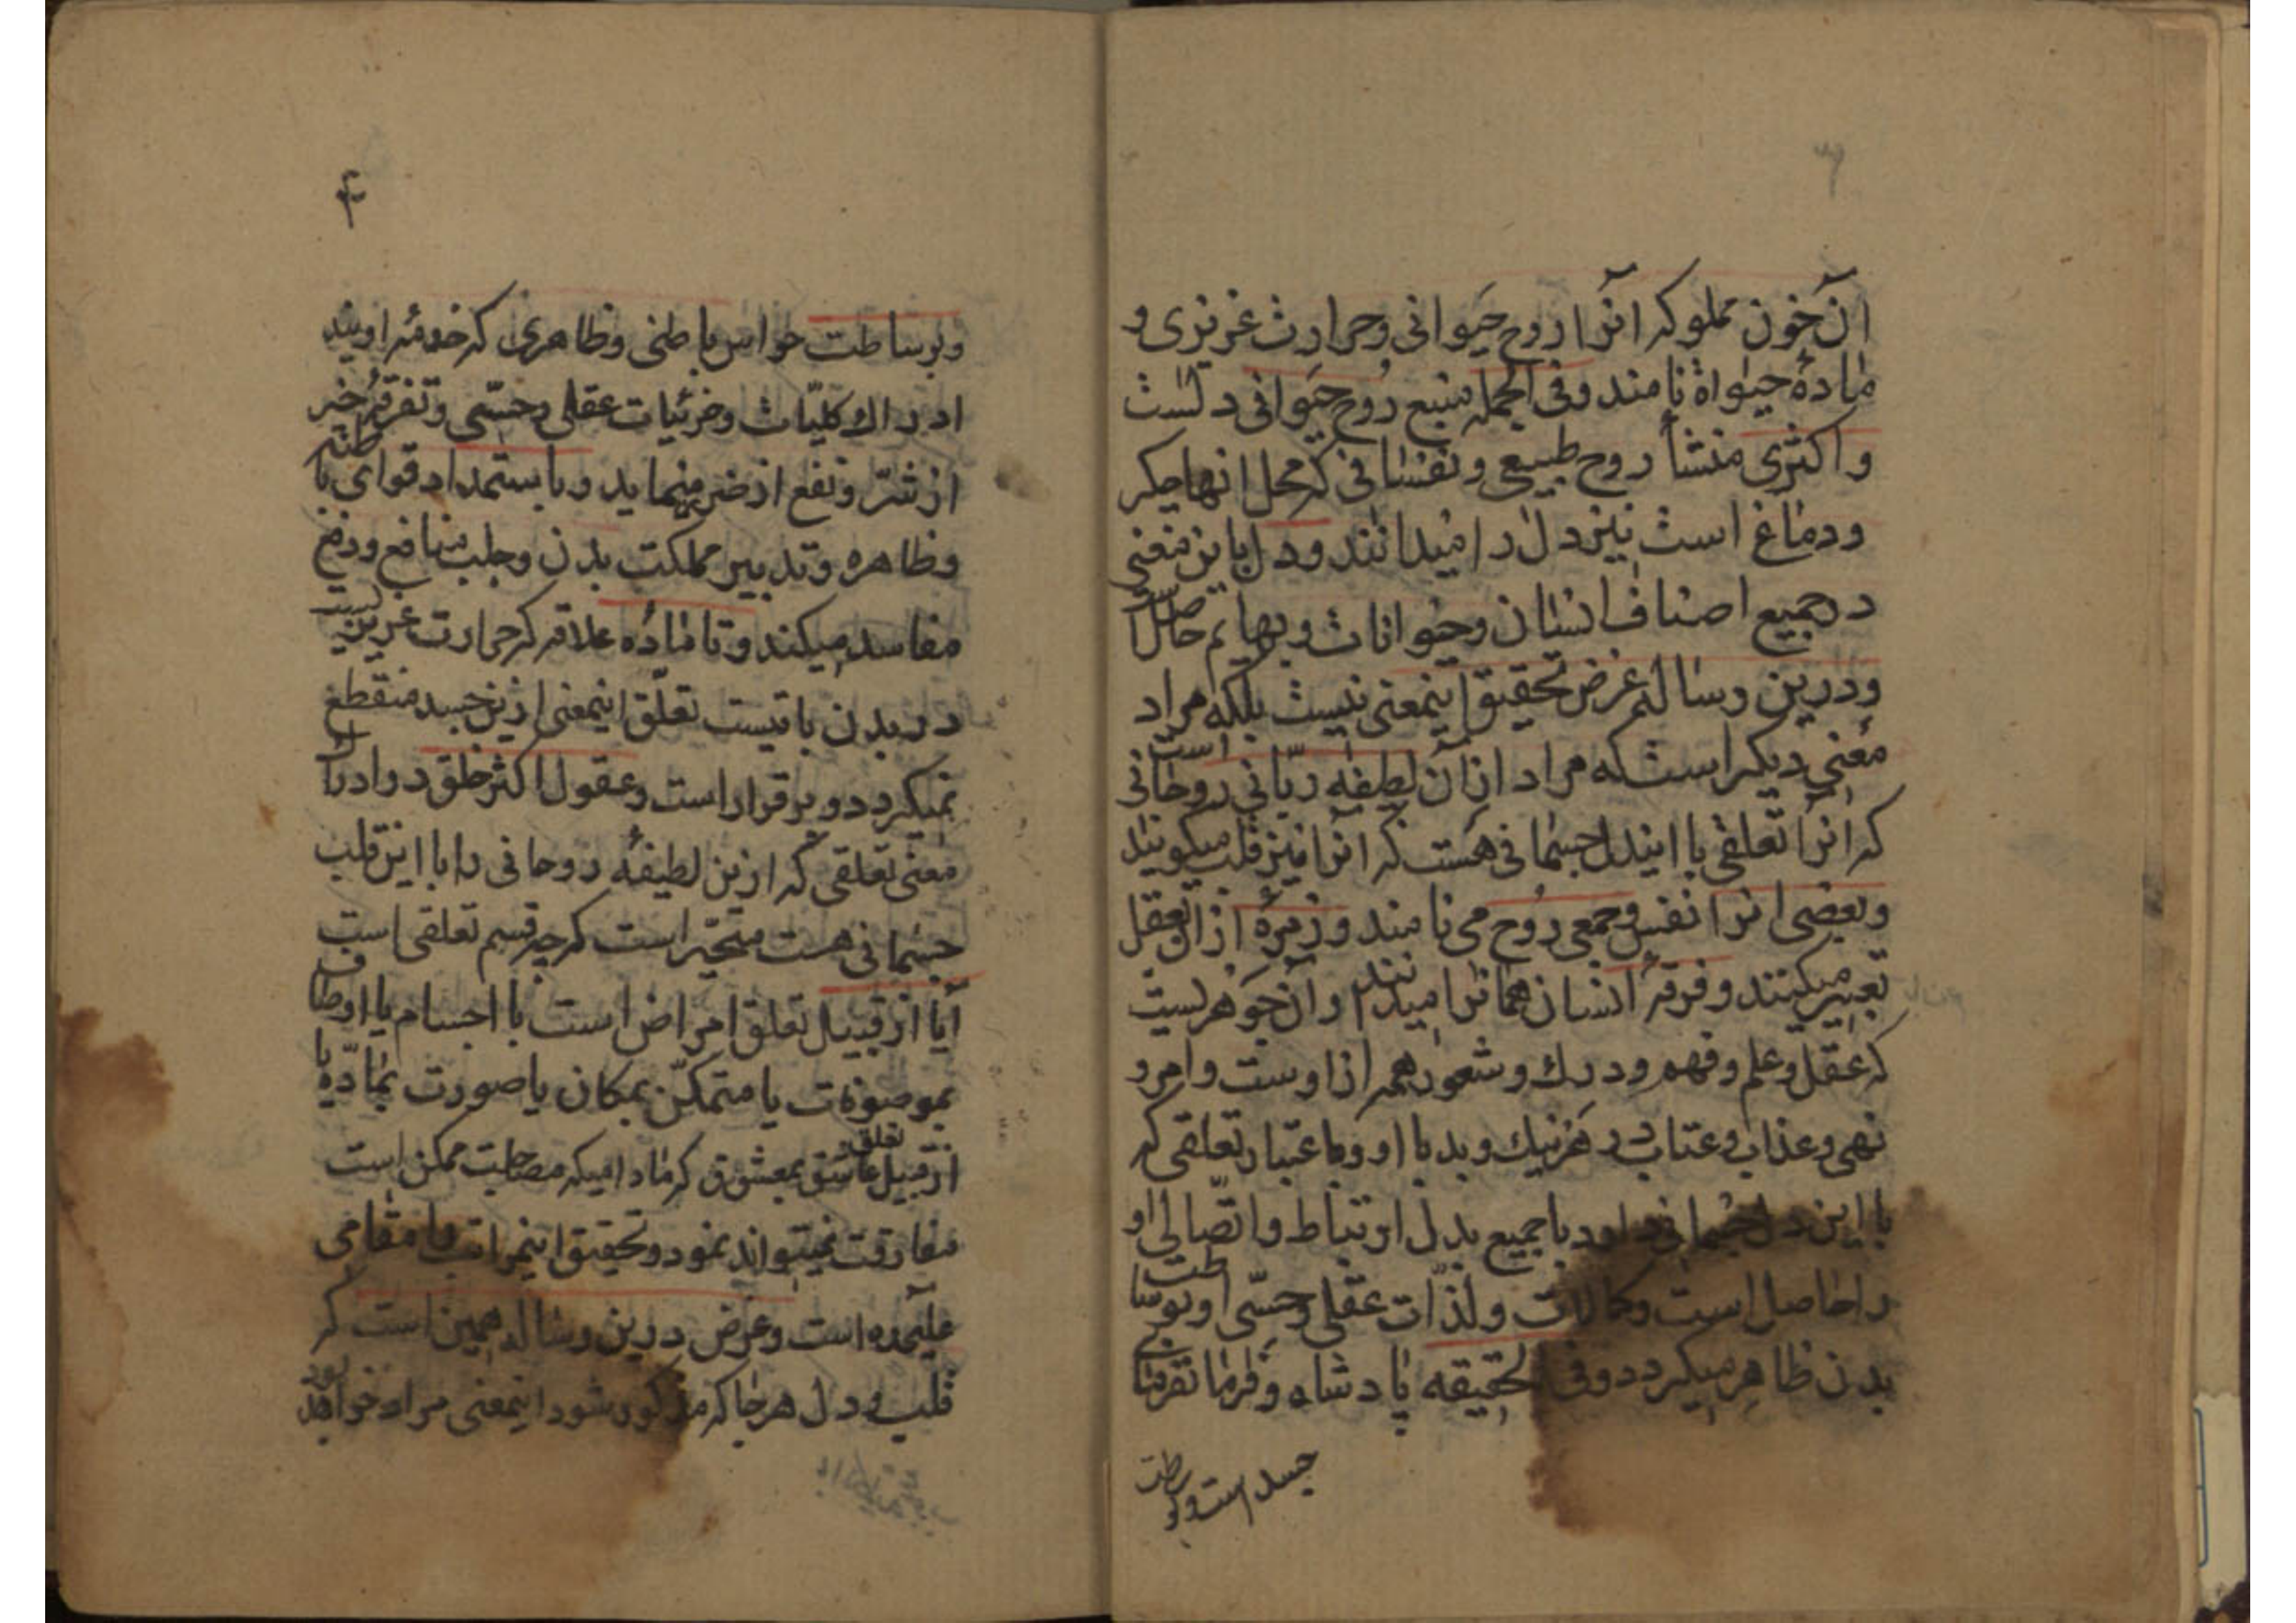 آن خون مملو که آنرا روح حیوانی و حرارت غریزی و
مادهٔ حیواة نامند و فی الجمله منبع روح حیوانی دلست
و اکثری منشأ روح طبیعی و نفسانی که محل انها جکر
و دماغ است نیز دل را میدانند و دل باین معنی
در جمیع اصناف انسان و حیوانات و بهایم حاصل است
و درین رساله غرض تحقیق اینمعنی نیست بلکه مراد
معنی دیکر است که مراد از ان لطیفه ربّانی روحانی است
که انرا تعلقی با ایندل جسمانی هست که آنرا نیز قلب میکویند
و بعضی انرا نفس و جمعی روح می نامند و زمرهٔ از ان بعقل
تعبیر میکنند و فرقهٔ انسان همانرا میدانند و آن جوهریست
که عقل و علم و فهم و درك و شعور همه از اوست و امر و
نهی و عذاب و عتاب در هر نیك و بد با او و باعتبار تعلقی که
با این دل جسمانی دارد با جمیع بدن ارتباط و اتّصالی او
را حاصل است و کمالات و لذّات عقلی و حسّی او بوساطت
بدن ظاهر میکردد و فی الحقیقه پادشاه و فرمانفرمای
جسد است و بوساطت
۴
و بوساطت حواس باطنی و ظاهری که خدمهٔ اویند
ادراك کلیّات و جزئیات عقلی و حسّی و تفرقهٔ خیر
از شرّ و نفع از ضرر مینماید و باستمداد قوای باطنه
و ظاهره و تدبیر مملکت بدن و جلب منافع و دفع
مفاسد میکند و تا مادهٔ علاقه که حرارت غریزیست
در بدن باقیست تعلّق اینمعنی ازین جسد منقطع
نمیکردد و برقرار است و عقول اکثر خلق در ادراك
معنی تعلقی که ازین لطیفهٔ روحانی را با این قلب
جسمانی هست متحیّر است که چه قسم تعلقی است
آیا از قبیل تعلق امراض است با اجسام یا اوصاف
بموصوفات یا متمکّن بمکان یا صورت بمادّه یا
از قبیل تعلق عاشق بمعشوق که مادامیکه مصاحبت ممکن است
مفارقت نمیتواند نمود و تحقیق اینمراتب را مقامی
علیحده است و غرض درین رساله همین است که
قلب و دل هر جا که مذکور شود اینمعنی مراد خواهد بود